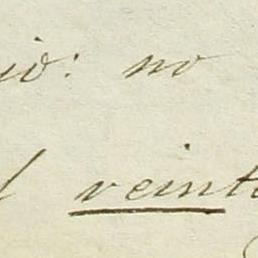 io: no
veint